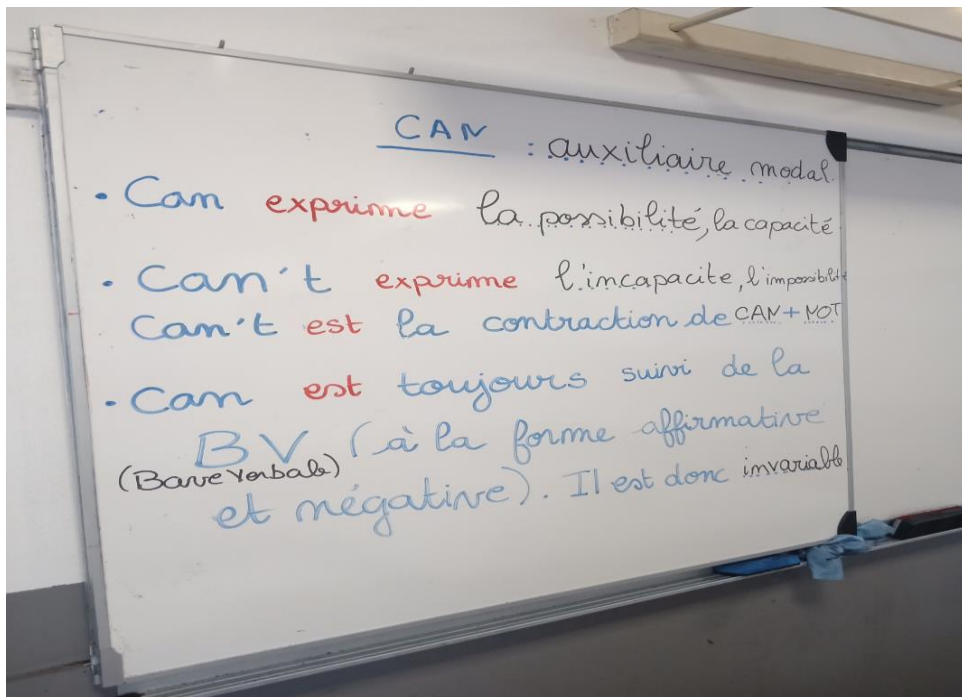 CAN : auxiliaire modal.
• Can exprime la possibilité, la capacité
• Can't exprime l'incapacite, l'impossibilité
Can't est la contraction de CAN + NOT
• Can est toujours suivi de la
BV (à la forme affirmative
(Base Verbale)
et négative). Il est donc invariable